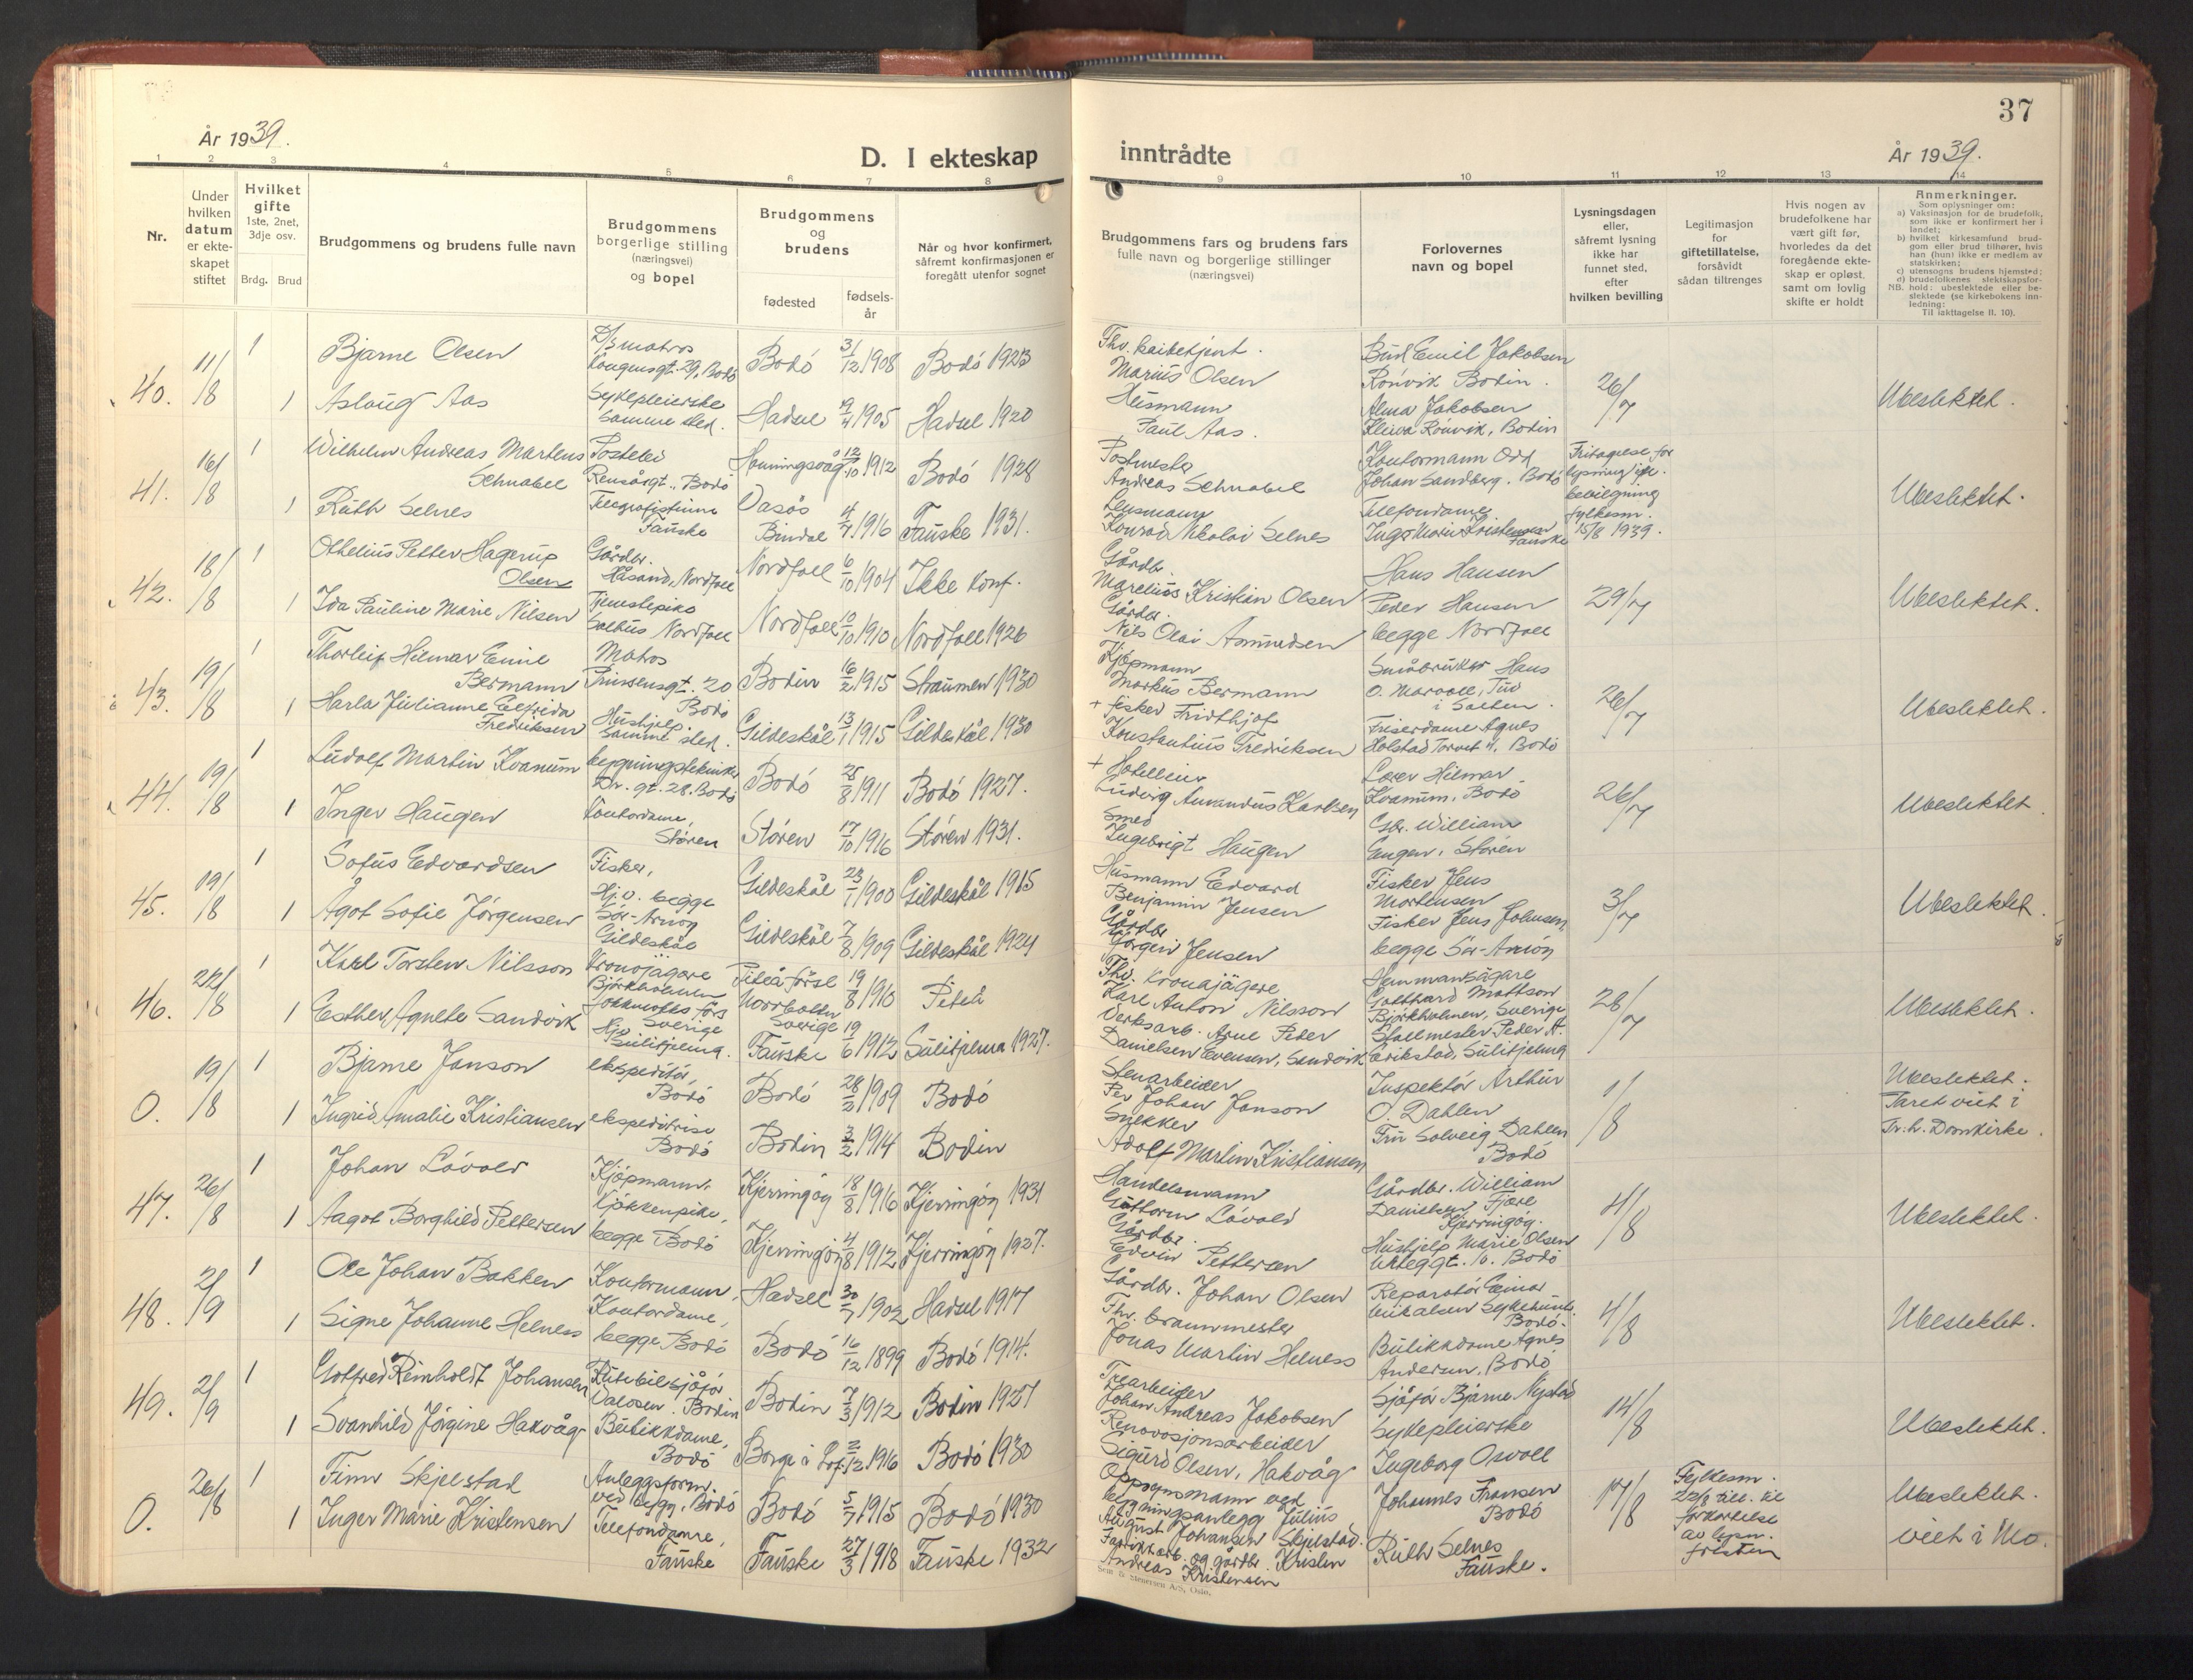 37
År 1939.
D. I ekteskap
inntrådte
År 1939.
1 2 3 4 5 6 7 8 9 10 11 12 13 14
Nr.
Under
hvilken
datum
er ekte-
skapet
stiftet
Hvilket
gifte
1ste, 2net,
3dje osv.
Brdg. Brud
Brudgommens og brudens fulle navn
Brudgommens
borgerlige stilling
(næringsvei)
og bopel
Brudgommens
og
brudens
fødested
fødsels-
år
Når og hvor konfirmert,
såfremt konfirmasjonen er
foregått utenfor sognet
Brudgommens fars og brudens fars
fulle navn og borgerlige stillinger
(næringsvei)
Forlovernes
navn og bopel
Lysningsdagen
eller,
såfremt lysning
ikke har
funnet sted,
efter
hvilken bevilling
Legitimasjon
for
giftetillatelse,
forsåvidt
sådan tiltrenges
Hvis nogen av
brudefolkene har
vært gift før,
hvorledes da det
foregående ekte-
skap er opløst,
samt om lovlig
skifte er holdt
Anmerkninger.
Som oplysninger om:
a) Vaksinasjon for de brudefolk,
som ikke er konfirmert her i
landet;
b) hvilket kirkesamfund brud-
gom eller brud tilhører, hvis
han (hun) ikke er medlem av
statskirken;
c) utensogns brudens hjemsted;
d) brudefolkenes slektskapsfor-
NB. hold: ubeslektede eller be-
slektede (se kirkebokens inn-
ledning:
Til iakttagelse II. 10).
40. 11/8 1 Bjarne Olsen
D/s matros
Kongensgt. 29, Bodö
Bodö 31/12 1908 Bodö 1923
1 Aslaug Aas
Sykepleierske
samme sted.
Hadsel 19/4 1905 Hadsel 1920
Thv. kaibetjent.
Marius Olsen
Husmann
Paul Aas.
Bud Emil Jakobsen
Rönvik Bodin.
Alma Jakobsen
Rönvik, Bodin
26/7
Ubeslektet.
41. 16/8 1 Wilhelm Andreas Martens
Schnabel
Rensåsgt., Bodö
Honningsvåg 12/10 1912 Bodö 1928
1 Ruth Selnes
Telegrafistinne
Fauske
Bindal 4/7 1916 Fauske 1931.
Postmester
Andreas Schnabel
Lensmann
Konrad Nikolai Selnes
Kontormann Odd
Johan Sandberg. Bodö
Telefondame
Inger Marie Kristensen
Fauske
Fritagelse for
lysning ifr.
bevilgning
fylkesm.
15/8 1939.
Ubeslektet.
42. 18/8 1 Othelius Petter Hagerup
Olsen
Gårdbr.
Håsand, Nordfoll
Nordfoll 6/10 1904 Ikke konf.
1 Ida Pauline Marie Nilsen
Tjenestepike
Nordfoll
Nordfoll 10/10 1910 Nordfoll 1926
Gårdbr.
Marelius Kristian Olsen
Gårdbr.
Nils Olai Asmundsen
Hans Hansen
Peder Hansen
begge Nordfoll
29/7
Ubeslektet.
43. 19/8 1 Thorleif Hilmar Emil
Bermann
Matros
Prinsensgt. 20
Bodö
Bodin 16/2 1915 Straumen 1930
1 Harla Julianne Elfrida
Fredriksen
Hushjelp
samme sted.
Gildeskål 13/1 1915 Gildeskål 1930
Kjöpmann
Markus Bermann
+ fisker Fridthjof
Konstantius Fredriksen
Småbruker Hans
O. Marvoll, Tuv
i Salten.
Friserdame Agnes
Holstad Torvet 4, Bodö
26/7
Ubeslektet.
44. 19/8 1 Ludolf Martin Kvanum
bygningstekniker
Dr. gt. 28. Bodö
Bodö 25/8 1911 Bodö 1927.
1 Inger Haugen
Kontordame,
Stören
Stören 17/10 1916 Stören 1931.
+ Hotelleier
Ludvig Amandus Karlsen
Smed
Ingebrigt Haugen
Lærer Hilmar
Kvanum, Bodö
Gbr. William
Engen, Stören
26/7
Ubeslektet
45. 19/8 1 Sofus Edvardsen
Fisker,
Gildeskål 23/1 1900 Gildeskål 1915
1 Ågot Sofie Jörgensen
Hj.v. begge
Sör-Arnöy
Gildeskål
Gildeskål 7/8 1909 Gildeskål 1924
Husmann Edvard
Benjamin Jensen
Gårdbr
Jörgen Jensen
Fisker Jens
Mortensen
Fisker Jens Johansen,
begge Sör-Arnöy
3/7
Ubeslektet.
46. 22/8 1 Karl Torsten Nilsson
Kronojägare
Björkholmen
Jokkmokks förs
Sverige
Piteå förs.
Norrbotten
Sverige
19/8 1910 Piteå
1 Esther Agnete Sandvik
Hj.v
Sulitjelma.
Fauske 19/6 1912 Sulitjelma 1927.
Thv. Kronojägere
Karl Anton Nilsson
Verksarb. Arne Peder
Danielsen Evensen, Sandvik
Hemmansägare
Gotthard Mattson
Björkholmen, Sverige
Stallmester Peder A.
Erikstad, Sulitjelma
28/7
Ubeslektet.
0. 19/8 1 Bjarne Janson
ekspeditör,
Bodö
Bodö 28/2 1909 Bodö
1 Ingrid Amalie Kristiansen
ekspeditrise
Bodö
Bodin 3/2 1914 Bodin
Stenarbeider
Per Johan Janson
Snekker
Adolf Martin Kristiansen
Inspektör Arthur
O. Dahlen
Fru Solveig Dahlen
Bodö
1/8
Ubeslektet.
Paret viet i
Tr.h. Domkirke.
47. 26/8 1 Johan Lövold
Kjöpmann,
Kjerringöy 18/8 1916 Kjerringöy 1931
1 Aagot Borghild Pettersen
Kjökkenpike,
begge Bodö
Kjerringöy 4/8 1912 Kjerringöy 1927.
Handelsmann
Guttorm Lövold
Gårdbr.
Edvin Pettersen
Gårdbr. William
Danielsen, Fjære
Kjerringöy.
Hushjelp Marie Olsen
10. Bodö
4/8
Ubeslektet.
48. 2/9 1 Ole Johan Bakken
Kontormann,
Hadsel 30/7 1902 Hadsel 1917
1 Signe Johanne Helness
Kontordame,
begge Bodö
Bodö 16/12 1899 Bodö 1914.
Gårdbr. Johan Olsen
Thv. brannmester
Jonas Martin Helness
Reparatör Einar
Bodö.
Butikkdame Agnes
Andersen, Bodö
4/8
Ubeslektet.
49. 2/9 1 Gotfred Reinholdt Johansen
Rutebilsjåför
Valosen. Bodin
Bodin 7/3 1912 Bodin 1927
1 Svanhild Jörgine Hakvåg
Butikkdame,
Bodö
Borge i Lof. 2/12 1916 Bodö 1930
Trearbeider
Johan Andreas Jakobsen
Renovasjonsarbeider
Sigurd Olsen, Hakvåg
Sjåför Bjarne Nystad
Sykepleierske
Ingeborg Osvoll
14/8
Ubeslektet.
0. 26/8 1 Finn Skjelstad
Anleggsform.
ved bygg, Bodö
Bodö 5/7 1915 Bodö 1930
1 Inger Marie Kristensen
Telefondame,
Fauske
Fauske 27/3 1918 Fauske 1932
Oppsynsmann ved
bygningsanlegg Julius
August Johansen Skjelstad.
Fabrikkarb. og gårdbr. Kristen
Andreas Kristensen
Johannes Fransen
Bodö
Ruth Selnes
Fauske.
17/8
Fylkesm.
22/8 till. til
forkortelse
av lysn.
fristen
Ubeslektet.
viet i Mo.
Sem & Stenersen A/S, Oslo.